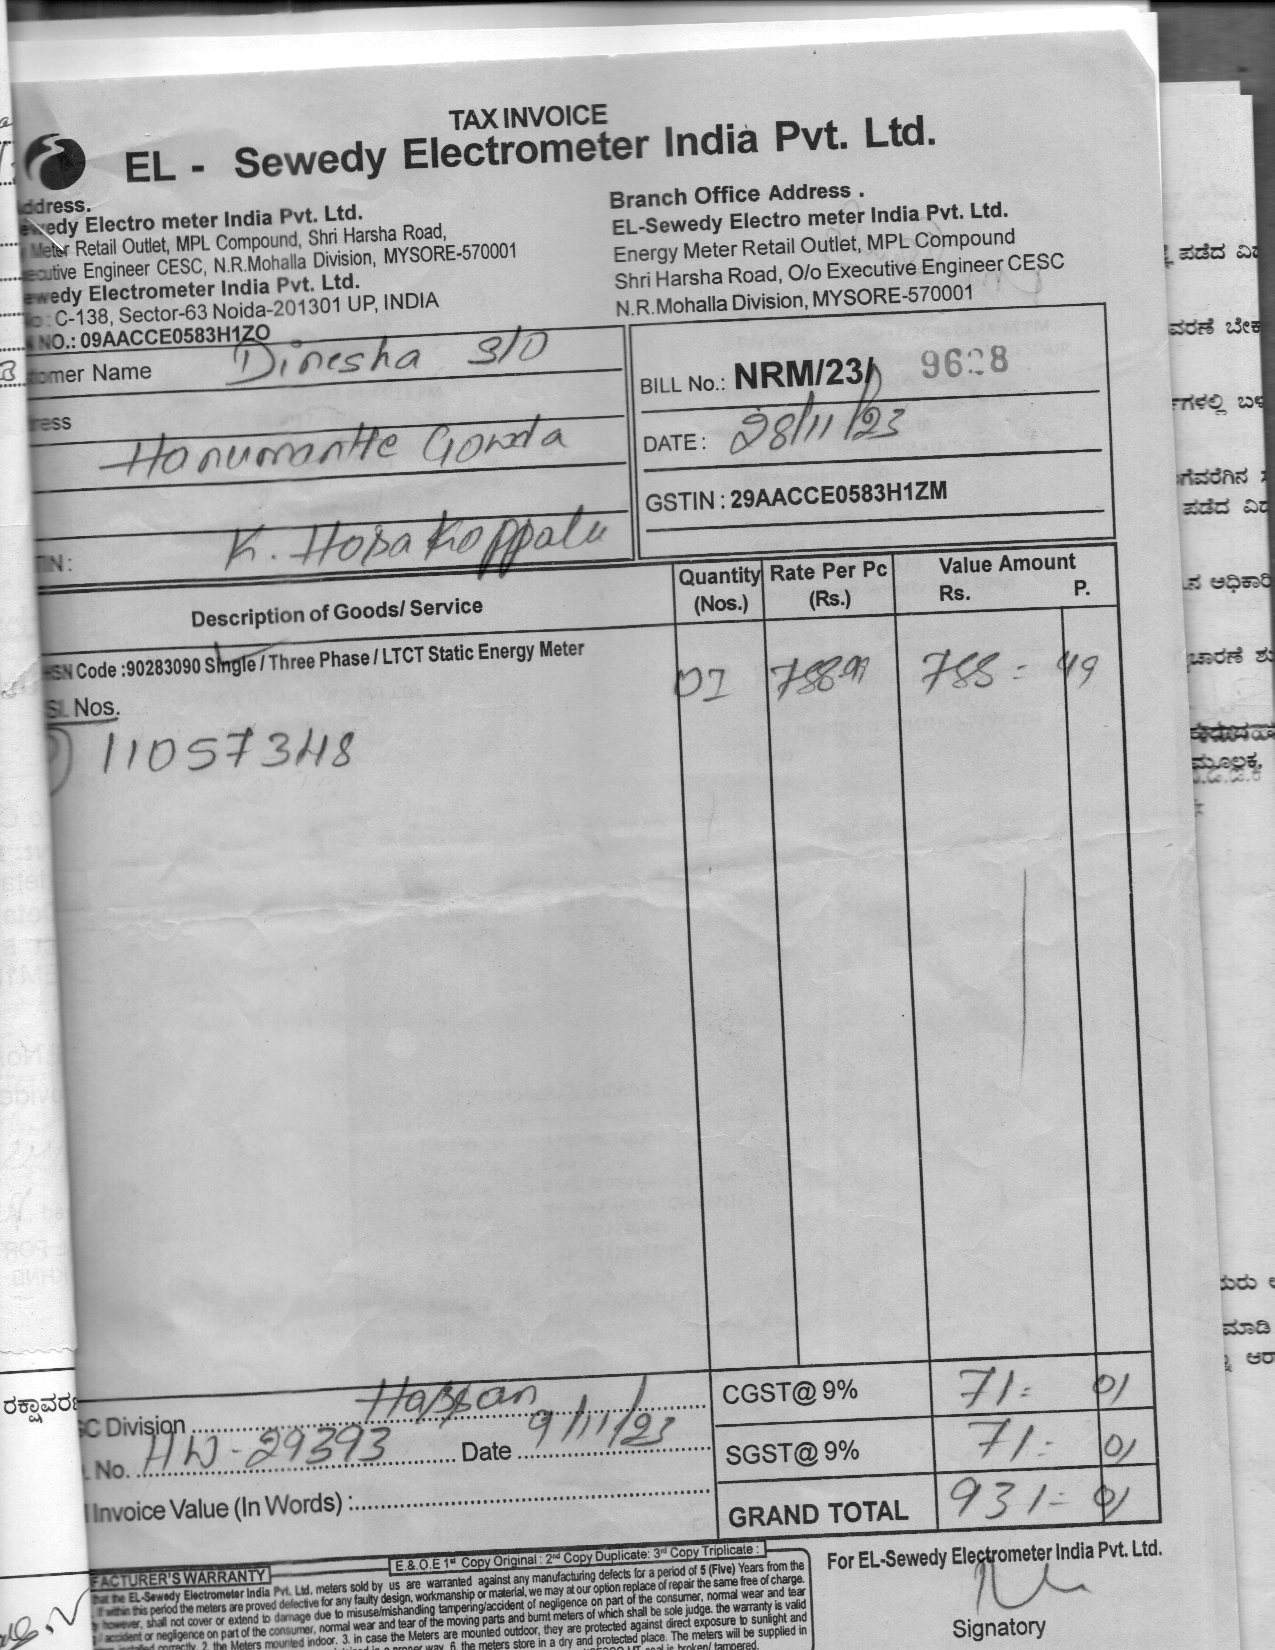 TAX INVOICE
EL - Sewedy Electrometer India Pvt. Ltd.
ddress.
ewedy Electro meter India Pvt. Ltd.
Meter Retail Outlet, MPL Compound, Shri Harsha Road,
ecutive Engineer CESC, N.R.Mohalla Division, MYSORE-570001
ewedy Electrometer India Pvt. Ltd.
C-138, Sector-63 Noida-201301 UP, INDIA
NO.: 09AACCE0583H1ZO
Branch Office Address .
EL-Sewedy Electro meter India Pvt. Ltd.
Energy Meter Retail Outlet, MPL Compound
Shri Harsha Road, O/o Executive Engineer CESC
N.R.Mohalla Division, MYSORE-570001
tomer Name Dinesha S/O
ress
Hanumantte Gowda
K. Hosakoppalu
TIN :
BILL No.: NRM/23/ 9628
DATE : 28/11/23
GSTIN : 29AACCE0583H1ZM
Description of Goods/ Service
Quantity (Nos.)
Rate Per Pc (Rs.)
Value Amount
Rs. P.
HSN Code :90283090 Single / Three Phase / LTCT Static Energy Meter
01 788.99 788= 49
SL Nos.
11057348
C Division Hassan
No. HW-29393 Date 9/11/23
Invoice Value (In Words) :
CGST@ 9% 71= 01
SGST@ 9% 71= 01
GRAND TOTAL 931= 01
E.& O.E 1st Copy Original : 2nd Copy Duplicate: 3rd Copy Triplicate :
FACTURER'S WARRANTY
that the EL-Sewedy Electrometer India Pvt. Ltd. meters sold by us are warranted against any manufacturing defects for a period of 5 (Five) Years from the
if within this period the meters are proved defective for any faulty design, workmanship or material, we may at our option replace of repair the same free of charge.
however, shall not cover or extend to damage due to misuse/mishandling tampering/accident of negligence on part of the consumer, normal wear and tear
accident or negligence on part of the consumer, normal wear and tear of the moving parts and burnt meters of which shall be sole judge. the warranty is valid
correctly. 2. the Meters mounted indoor. 3. in case the Meters are mounted outdoor, they are protected against direct exposure to sunlight and
proper way. 6. the meters store in a dry and protected place. The meters will be supplied in
seal is broken/ tampered.
For EL-Sewedy Electrometer India Pvt. Ltd.
Signatory
ಪಡೆದ ವಿ
ವರಣೆ ಬೇಕ
ಗಳಲ್ಲಿ ಬಳ
ಗೆವರೆಗಿನ
ಪಡೆದ ವಿ
ನ ಅಧಿಕಾರಿ
ಚಾರಣೆ ಶು
ಮೂಲಕ್ಕ
ಮರು
ಮಾಡಿ
ಆರ
ರಕ್ಷಾವರಣ